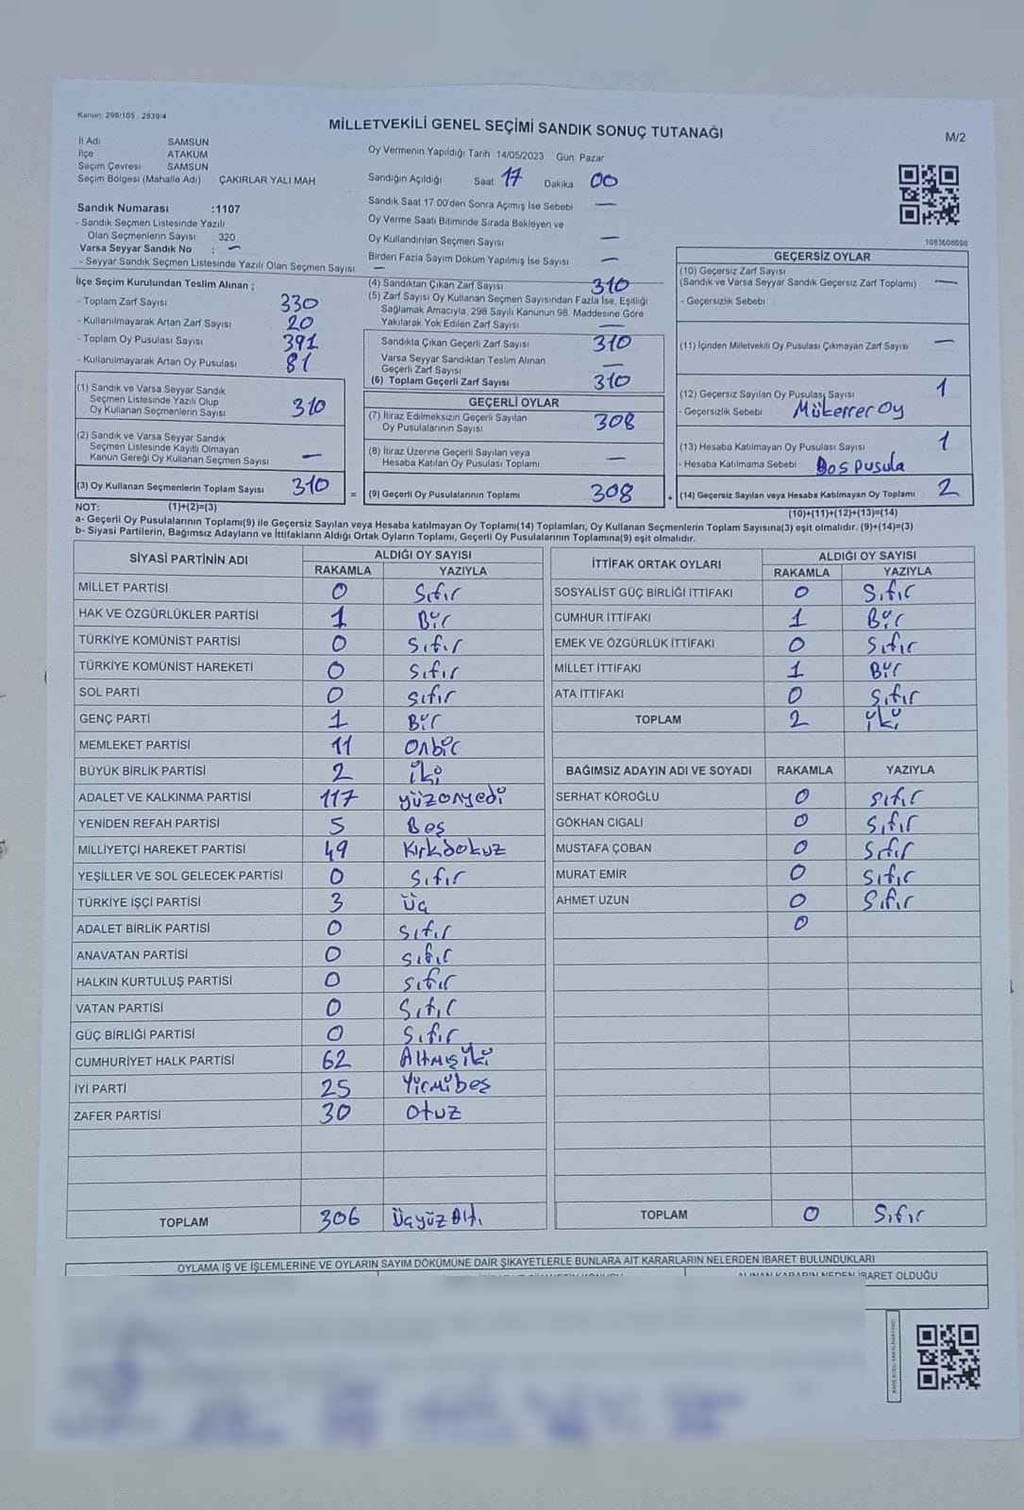 Kanun: 298/105, 2839/4
MİLLETVEKİLİ GENEL SEÇİMİ SANDIK SONUÇ TUTANAĞI
M/2
İl Adı SAMSUN
İlçe ATAKUM
Seçim Çevresi SAMSUN
Seçim Bölgesi (Mahalle Adı) ÇAKIRLAR YALI MAH
Sandık Numarası :1107
- Sandık Seçmen Listesinde Yazılı
Olan Seçmenlerin Sayısı 320
Varsa Seyyar Sandık No : —
- Seyyar Sandık Seçmen Listesinde Yazılı Olan Seçmen Sayısı —
Oy Vermenin Yapıldığı Tarih 14/05/2023 Gün Pazar
Sandığın Açıldığı Saat 17 Dakika 00
Sandık Saat 17.00'den Sonra Açımış İse Sebebi —
Oy Verme Saati Bitiminde Sırada Bekleyen ve
Oy Kullandırılan Seçmen Sayısı —
Birden Fazla Sayım Döküm Yapılmış İse Sayısı —
İlçe Seçim Kurulundan Teslim Alınan ;
- Toplam Zarf Sayısı 330
- Kullanılmayarak Artan Zarf Sayısı 20
- Toplam Oy Pusulası Sayısı 391
- Kullanılmayarak Artan Oy Pusulası 81
(1) Sandık ve Varsa Seyyar Sandık
Seçmen Listesinde Yazılı Olup
Oy Kullanan Seçmenlerin Sayısı 310
(2) Sandık ve Varsa Seyyar Sandık
Seçmen Listesinde Kayıtlı Olmayan
Kanun Gereği Oy Kullanan Seçmen Sayısı —
(3) Oy Kullanan Seçmenlerin Toplam Sayısı 310
(4) Sandıktan Çıkan Zarf Sayısı 310
(5) Zarf Sayısı Oy Kullanan Seçmen Sayısından Fazla İse, Eşitliği
Sağlamak Amacıyla, 298 Sayılı Kanunun 98. Maddesine Göre
Yakılarak Yok Edilen Zarf Sayısı —
Sandıkta Çıkan Geçerli Zarf Sayısı 310
Varsa Seyyar Sandıktan Teslim Alınan
Geçerli Zarf Sayısı —
(6) Toplam Geçerli Zarf Sayısı 310
GEÇERLİ OYLAR
(7) İtiraz Edilmeksizin Geçerli Sayılan
Oy Pusulalarının Sayısı 308
(8) İtiraz Üzerine Geçerli Sayılan veya
Hesaba Katılan Oy Pusulası Toplamı —
= (9) Geçerli Oy Pusulalarının Toplamı 308
GEÇERSİZ OYLAR
(10) Geçersiz Zarf Sayısı
(Sandık ve Varsa Seyyar Sandık Geçersiz Zarf Toplamı) —
- Geçersizlik Sebebi
(11) İçinden Milletvekili Oy Pusulası Çıkmayan Zarf Sayısı —
(12) Geçersiz Sayılan Oy Pusulası Sayısı 1
- Geçersizlik Sebebi Mükerrer Oy
(13) Hesaba Katılmayan Oy Pusulası Sayısı 1
- Hesaba Katılmama Sebebi Boş Pusula
(14) Geçersiz Sayılan veya Hesaba Katılmayan Oy Toplamı 2
NOT: (1)+(2)=(3) (10)+(11)+(12)+(13)=(14)
a- Geçerli Oy Pusulalarının Toplamı(9) ile Geçersiz Sayılan veya Hesaba katılmayan Oy Toplamı(14) Toplamları, Oy Kullanan Seçmenlerin Toplam Sayısına(3) eşit olmalıdır. (9)+(14)=(3)
b- Siyasi Partilerin, Bağımsız Adayların ve İttifakların Aldığı Ortak Oyların Toplamı, Geçerli Oy Pusulalarının Toplamına(9) eşit olmalıdır.
SİYASİ PARTİNİN ADI ALDIĞI OY SAYISI
RAKAMLA YAZIYLA
MİLLET PARTİSİ 0 Sıfır
HAK VE ÖZGÜRLÜKLER PARTİSİ 1 Bir
TÜRKİYE KOMÜNİST PARTİSİ 0 Sıfır
TÜRKİYE KOMÜNİST HAREKETİ 0 Sıfır
SOL PARTİ 0 Sıfır
GENÇ PARTİ 1 Bir
MEMLEKET PARTİSİ 11 Onbir
BÜYÜK BİRLİK PARTİSİ 2 iki
ADALET VE KALKINMA PARTİSİ 117 yüzonyedi
YENİDEN REFAH PARTİSİ 5 Beş
MİLLİYETÇİ HAREKET PARTİSİ 49 Kırkdokuz
YEŞİLLER VE SOL GELECEK PARTİSİ 0 Sıfır
TÜRKİYE İŞÇİ PARTİSİ 3 Üç
ADALET BİRLİK PARTİSİ 0 Sıfır
ANAVATAN PARTİSİ 0 Sıfır
HALKIN KURTULUŞ PARTİSİ 0 Sıfır
VATAN PARTİSİ 0 Sıfır
GÜÇ BİRLİĞİ PARTİSİ 0 Sıfır
CUMHURİYET HALK PARTİSİ 62 Altmışiki
İYİ PARTİ 25 Yirmibeş
ZAFER PARTİSİ 30 Otuz
TOPLAM 306 Üçyüz Altı
İTTİFAK ORTAK OYLARI ALDIĞI OY SAYISI
RAKAMLA YAZIYLA
SOSYALİST GÜÇ BİRLİĞİ İTTİFAKI 0 Sıfır
CUMHUR İTTİFAKI 1 Bir
EMEK VE ÖZGÜRLÜK İTTİFAKI 0 Sıfır
MİLLET İTTİFAKI 1 Bir
ATA İTTİFAKI 0 Sıfır
TOPLAM 2 iki
BAĞIMSIZ ADAYIN ADI VE SOYADI RAKAMLA YAZIYLA
SERHAT KÖROĞLU 0 Sıfır
GÖKHAN CIGALI 0 Sıfır
MUSTAFA ÇOBAN 0 Sıfır
MURAT EMİR 0 Sıfır
AHMET UZUN 0 Sıfır
0
TOPLAM 0 Sıfır
OYLAMA İŞ VE İŞLEMLERİNE VE OYLARIN SAYIM DÖKÜMÜNE DAİR ŞİKAYETLERLE BUNLARA AİT KARARLARIN NELERDEN İBARET BULUNDUKLARI
ALINAN KARARIN NEDEN İBARET OLDUĞU